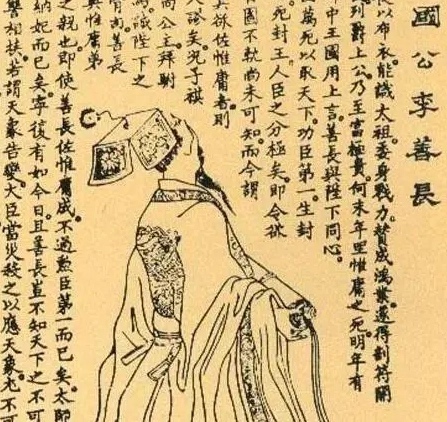 國公李善長
以布衣能識太祖。委身戮力。贊成鴻業。遂得剖符開
列爵上公。乃至富極貴。何末年惟庸之死。明年有
中王國用上言。善長與陛下同心。
萬死以取天下。功臣第一。生封
死封王。人臣之分極矣。即令欲
圖不軌。尚未可知。而今謂
其欲佐惟庸者。則
大謬矣。況子祺
尚公主。拜駙
戚陛下之
骨肉。善長
與惟庸。弟
之親也。即使善長佐惟庸成。不過勲臣第一而已矣。太師
納妃而已矣。寧復有如今日。且善長豈不知天下之不可
相扶。若謂天象告變。大臣當災。殺之以應天象。尤不可